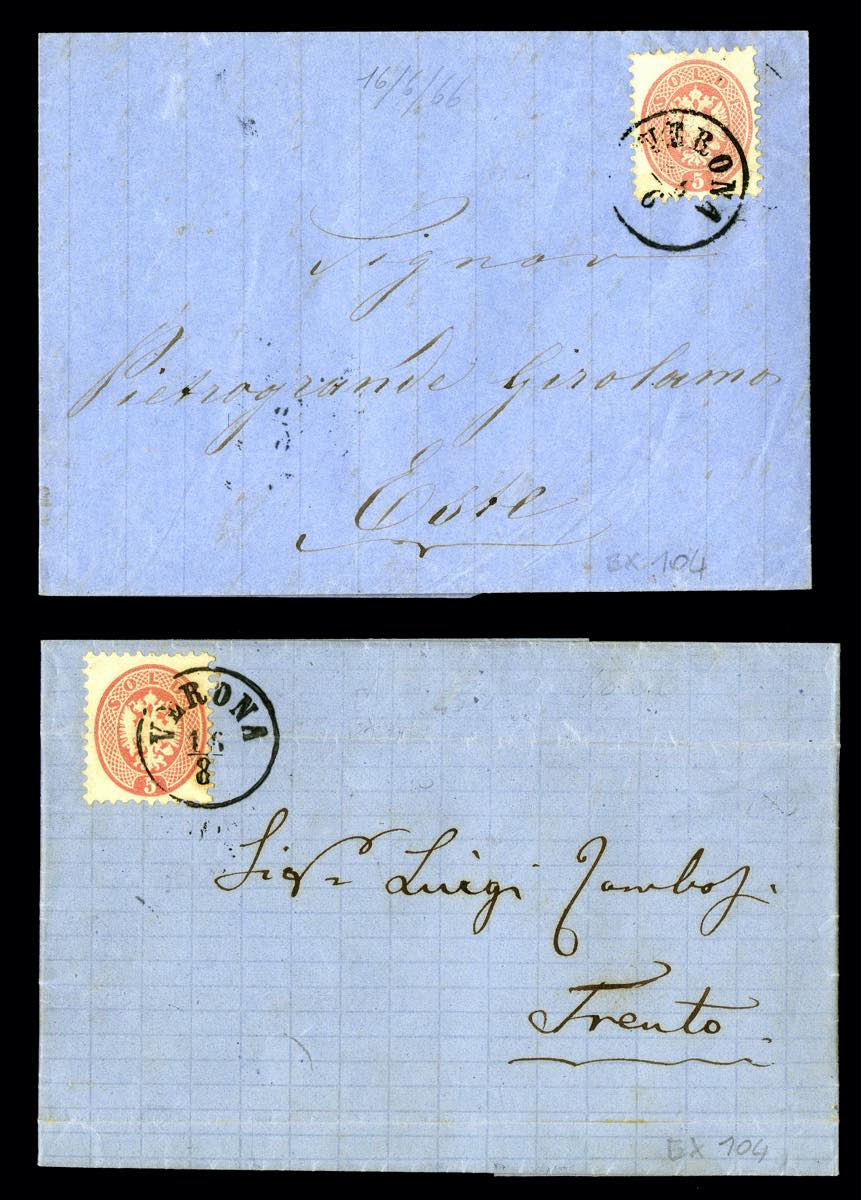 16/6/66
SOLDI
5
VERONA
6
Signor
Pietrogrande Girolamo
Este
EX 104
SOLDI
5
VERONA
16
8
Sigr Luigi
Trento
EX 104